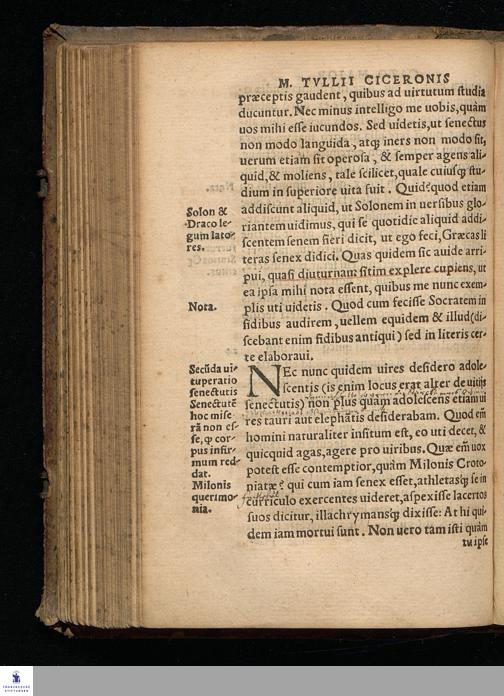 M. TVLLII CICERONIS
præceptis gaudent, quibus ad uirtutum studia
ducuntur. Nec minus intelligo me uobis, quàm
uos mihi esse iucundos. Sed uidetis, ut senectus
non modo languida, atq; iners non modo sit,
uerum etiam sit operosa, & semper agens ali-
quid, & moliens, tale scilicet, quale cuiusq; stu-
dium in superiore uita fuit. Quid? quod etiam
addiscunt aliquid, ut Solonem in uersibus glo-
riantem uidimus, qui se quotidie aliquid addi-
scentem senem fieri dicit, ut ego feci, Græcas li
teras senex didici. Quas quidem sic auide arri-
pui, quasi diuturnam sitim explere cupiens, ut
ea ipsa mihi nota essent, quibus me nunc exem-
plis uti uidetis. Quod cum fecisse Socratem in
fidibus audirem, uellem equidem & illud (di-
scebant enim fidibus antiqui) sed in literis cer-
te elaboraui.
Solon &
Draco le-
gum lato-
res.
Nota.
NEc nunc quidem uires desidero adole-
scentis (is enim locus erat alter de uitijs
senectutis) non plus quàm adolescens etiam ui
res tauri aut elephãtis desiderabam. Quod em̃
homini naturaliter insitum est, eo uti decet, &
quicquid agas, agere pro uiribus. Quæ em̃ uox
potest esse contemptior, quàm Milonis Croto-
niatæ? qui cum iam senex esset, athletasq; se in
curriculo exercentes uideret, aspexisse lacertos
suos dicitur, illachrymansq; dixisse: At hi qui-
dem iam mortui sunt. Non uero tam isti quàm
tu ipse
Secũda ui-
tuperatio
senectutis
Senectutẽ
hoc mise
rã non es-
se, q̃ cor-
pus infir-
mum red-
dat.
Milonis
querimo-
nia.
FRANCKESCHE
STIFTUNGEN